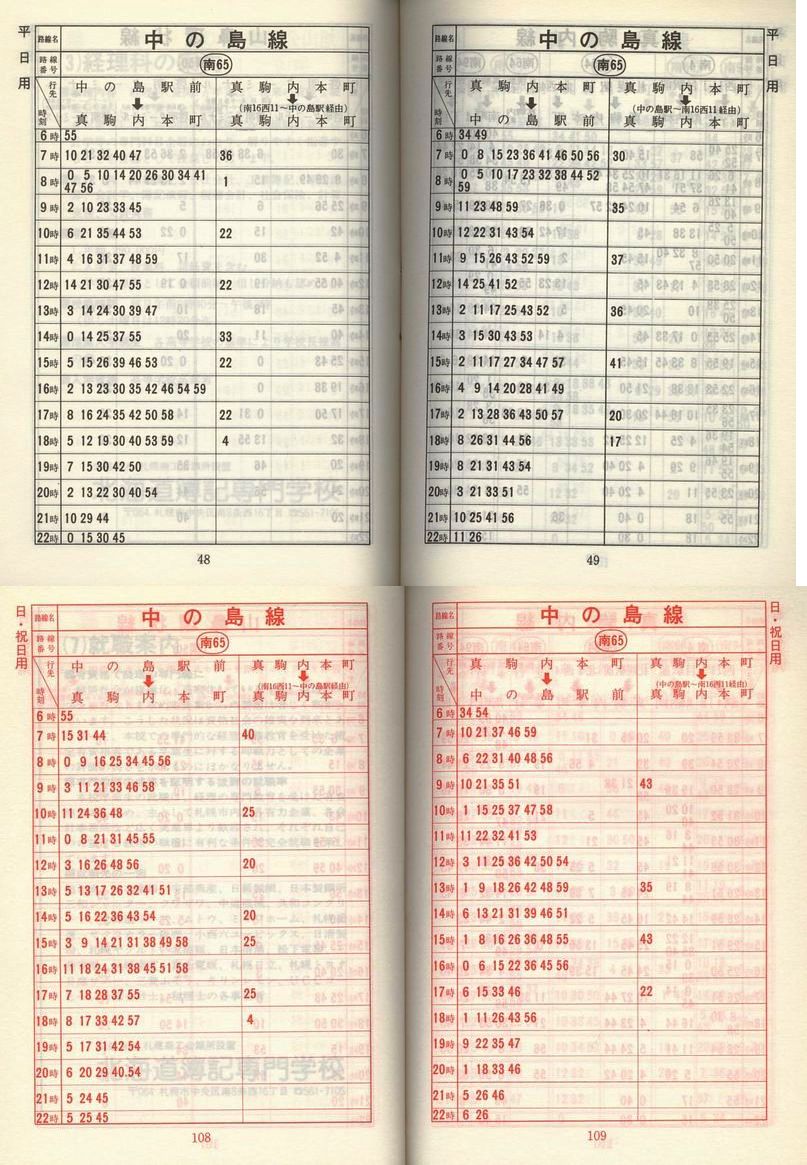 平日用
路線名 中の島線
路線番号 南65
行先 時刻
中の島駅前 ↓ 真駒内本町
真駒内本町 ↓ (南16西11～中の島駅経由) 真駒内本町
6時 55
7時 10 21 32 40 47 36
8時 0 5 10 14 20 26 30 34 41 47 56 1
9時 2 10 23 33 45
10時 6 21 35 44 53 22
11時 4 16 31 37 48 59
12時 14 21 30 47 55 22
13時 3 14 24 30 39 47
14時 0 14 25 37 55 33
15時 5 15 26 39 46 53 22
16時 2 13 23 30 35 42 46 54 59
17時 8 16 24 35 42 50 58 22
18時 5 12 19 30 40 53 59 4
19時 7 15 30 42 50
20時 2 13 22 30 40 54
21時 10 29 44
22時 0 15 30 45
48
平日用
路線名 中の島線
路線番号 南65
行先 時刻
真駒内本町 ↓ 中の島駅前
真駒内本町 ↓ (中の島駅～南16西11経由) 真駒内本町
6時 34 49
7時 0 8 15 23 36 41 46 50 56 30
8時 0 5 10 17 23 32 38 44 52 59
9時 11 23 48 59 35
10時 12 22 31 43 54
11時 9 15 26 43 52 59 37
12時 14 25 41 52
13時 2 11 17 25 43 52 36
14時 3 15 30 43 53
15時 2 11 17 27 34 47 57 41
16時 4 9 14 20 28 41 49
17時 2 13 28 36 43 50 57 20
18時 8 26 31 44 56 17
19時 8 21 31 43 54
20時 3 21 33 51
21時 10 25 41 56
22時 11 26
49
日・祝日用
路線名 中の島線
路線番号 南65
行先 時刻
中の島駅前 ↓ 真駒内本町
真駒内本町 ↓ (南16西11～中の島駅経由) 真駒内本町
6時 55
7時 15 31 44 40
8時 0 9 16 25 34 45 56
9時 3 11 21 33 46 58
10時 11 24 36 48 25
11時 0 8 21 31 45 55
12時 3 16 26 48 56 20
13時 5 13 17 26 32 41 51
14時 5 16 22 36 43 54 20
15時 3 9 14 21 31 38 49 58 25
16時 11 18 24 31 38 45 51 58
17時 7 18 28 37 55 25
18時 8 17 33 42 57 4
19時 5 17 31 42 54
20時 6 20 29 40 54
21時 5 24 45
22時 5 25 45
108
日・祝日用
路線名 中の島線
路線番号 南65
行先 時刻
真駒内本町 ↓ 中の島駅前
真駒内本町 ↓ (中の島駅～南16西11経由) 真駒内本町
6時 34 54
7時 10 21 37 46 59
8時 6 22 31 40 48 56
9時 10 21 35 51 43
10時 1 15 25 37 47 58
11時 11 22 32 41 53
12時 3 11 25 36 42 50 54
13時 1 9 18 26 42 48 59 35
14時 6 13 21 31 39 46 51
15時 1 8 16 26 36 48 55 43
16時 0 6 15 22 36 45 56
17時 6 15 33 46 22
18時 1 11 26 43 56
19時 9 22 35 47
20時 1 18 33 46
21時 5 26 46
22時 6 26
109